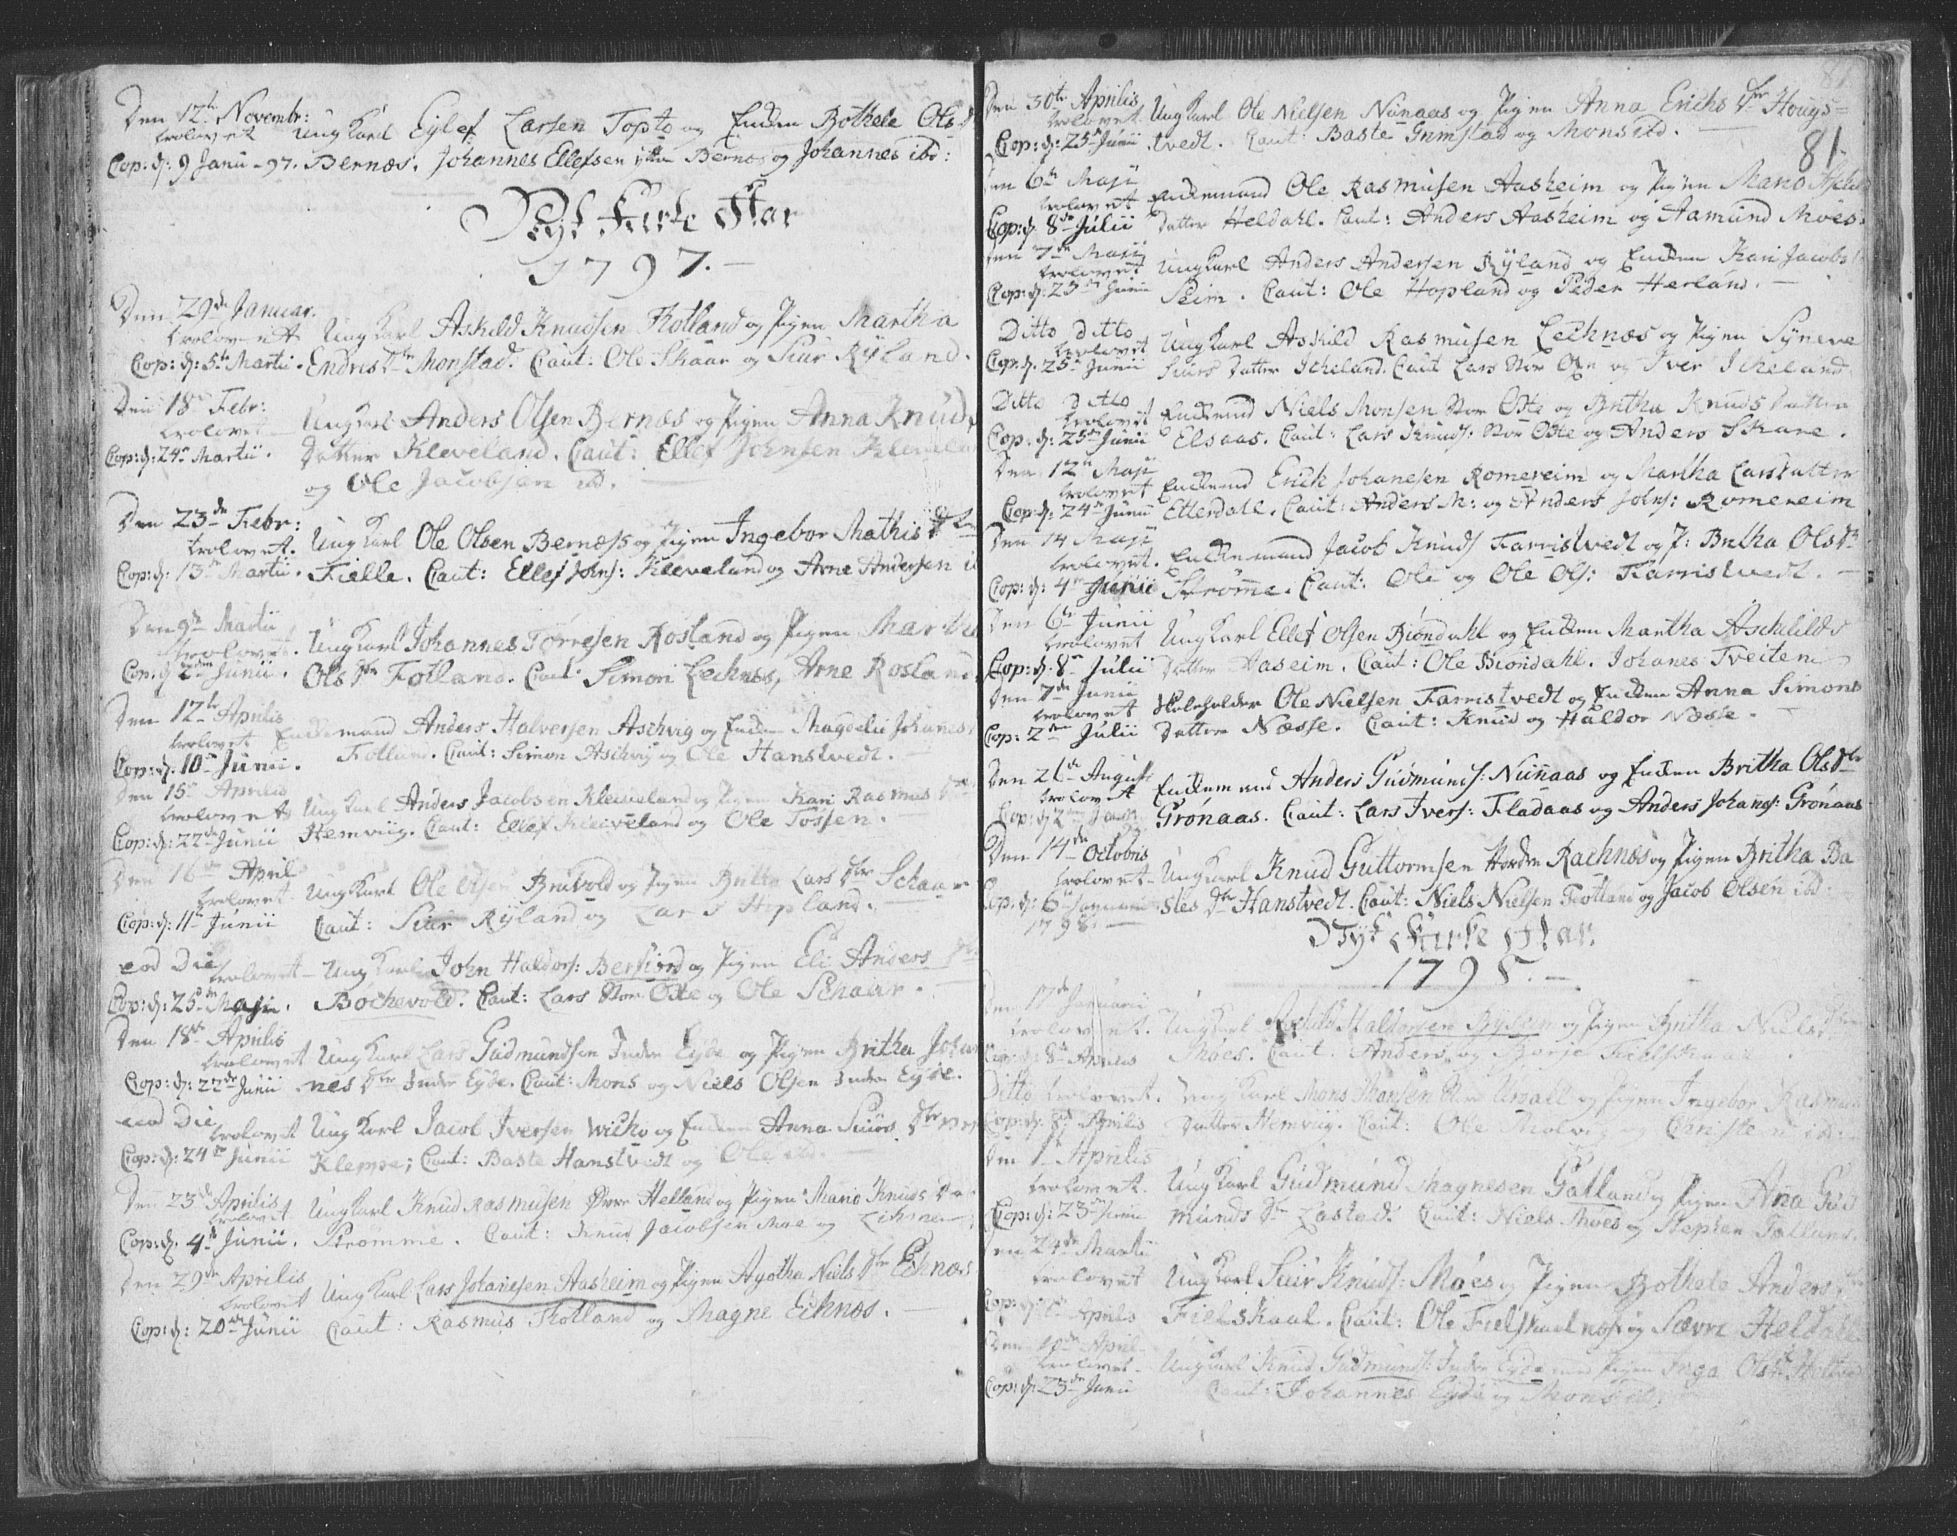 Den 12te Novembr:
trolovet Ungkarl Eylef Larsen Topto og Enken Bothele Ols D
Cop: d: 9 Janu - 97. Bernæs. Johannes Ellefsen Bernæs og Johannes ibd:
Nyt Kirke Aar
1797. —
Den 29de Januar.
trolovet Ungkarl Askild Knudsen Fotland og Pigen Martha
Cop: d: 5te Martii. Endris Dtr Monstad. Caut: Ole Skaar og Siur Ryland.
Den 18de Febr:
trolovet Ungkarl Anders Olsen Bernæs og Pigen Anna Knuds
Cop: d: 24de Martii. Datter Kleveland. Caut: Ellef Johnsen Klevela
og Ole Jacobsen ibd.
Den 23de Febr:
trolovet. Ungkarl Ole Olsen Bernæs og Pigen Ingebor Mathis Dtr
Cop: d: 13de Martii. Fielle. Caut: Ellef Johns: Kleveland og Arne Andersen
Den 9de Martii
trolovet. Ungkarl Johannes Torresen Rosland og Pigen Martha
Cop: d: 2den Junii. Ols Dtr Fotland. Caut: Simon Lechnes, Arne Rosland
Den 12te Aprilis
trolovet Enkemand Anders Halversen Aschvig og Enken Magdeli Johannes
Cop: d. 10de Junii. Fotland. Caut: Simon Aschvig og Ole Hanstvedt.
Den 15de Aprilis
trolovet Ungkarl Anders Jacobsen Kleiveland og Pigen Kari Rasmus Dtr
Cop: d: 22de Junii Hemviig. Caut: Ellef Kleiveland og Ole Tossen.
Den 16de April
trolovet Ungkarl Ole Olsen Bruvold og Pigen Britta Lars Dtr Schaar
Cop: d: 11te Junii Caut: Siur Ryland og Lars Hopland.
eod Die
trolovet — Ungkarl John Haldors: Berfiord og Pigen Eli Anders Dtr
Cop: d: 25de Maji. Bochevold. Caut: Lars Stor Oxe og Ole Schaar.
Den 18de Aprilis
trolovet Ungkarl Lars Gudmundsen Indre Eyde og Pigen Britha Johan
Cop: d: 22de Junii nes Dtr Indre Eyde. Caut: Mons og Niels Olsen Indre Eyde.
eod Die
trolovet Ungkarl Jacob Iversen Wicho og Enken Anna Siurs Dtr
Cop: d: 24de Junii Klempe; Caut: Baste Hanstvedt og Ole ibd. —
Den 23de Aprilis
trolovet Ungkarl Knud Rasmusen Øvre Helland og Pigen Mario Knuds Dtr
Cop: d. 4de Junii. Stromme. Caut: Knud Jacobsen Moe og
Den 29de Aprilis
trolovet Ungkarl Lars Johanesen Aasheim og Pigen Agotha Niels Dtr Echnæs
Cop: d: 20de Junii Caut: Rasmus Fotland og Magne Echnæs. —
81.
Den 30te Aprilis
trolovet Ungkarl Ole Nielsen Nunaas og Pigen Anna Erichs Dtr Hougs=
Cop: d: 25de Junii tvedt. Caut: Baste Grimstad og Mons ibd. —
Den 6te Maji
trolovet Enkemand Ole Rasmusen Aasheim og Pigen Mario
Cop: d. 8de Julii Datter Heldahl. Caut: Anders Aasheim og Aamund Moes.
Den 7de Maji
trolovet Ungkarl Anders Andersen Ryland og Enken Kari Jacobs
Cop: d: 23de Junii Seim. Caut: Ole Hopland og Peder Herland. —
Ditto Ditto
trolovet Ungkarl Askild Rasmusen Lechnæs og Pigen Syneve
Cop: d: 25de Junii Siurs Datter Icheland. Caut Lars Stor Oxe og Iver Icheland
Ditto Ditto
trolovet Enkemand Niels Monsen Stor Oxe og Britha Knuds Datter
Cop: d: 25de Junii Elsaas. Caut: Lars Knuds: Stor Oxe og Anders Skare.
Den 12te Maji
trolovet Enkemand Erich Johanesen Romereim og Martha Larsdatter
Cop: d: 24de Junii Etterdall. Caut: Anders M: og Anders Johns: Romereim
Den 14 Maji
trolovet. Enkemand Jacob Knuds Farristvedt og P: Britha Ols Dtr
Cop: d: 4de Junii Stromme. Caut: Ole og Ole Ols: Farristvedt. —
Den 6te Junii
trolovet Ungkarl Ellef Olsen Biondahl og Enken Martha Aschilds
Cop: d. 8de Julii Datter Haseim. Caut: Ole Biondahl. Johanes Tveiten
Den 7de Junii
trolovet Skoleholder Ole Nielsen Farristvedt og Enken Anna Simons
Cop: 2den Julii Datter Næsse. Caut: Knud og Haldor Næsse. —
Den 21de August
trolovet Enkemand Anders Gudmunds: Nunaas og Enken Britha Ols Dtr
Cop: d: 2 Grónaas. Caut: Lars Ivers: Fladaas og Anders Johans: Grónaas
Den 14de Octobris
trolovet — Ungkarl Knud Guttormsen Hordre Rachnæs og Pigen Britha Ba
Cop: d: 6te Januarii stes Dtr Hanstvedt. Caut: Niels Nielsen Fotland og Jacob Olsen ibd:
1798. —
Nyt Kirke Aar.
1798. —
Den 17de Januarii
trolovet. Ungkarl Askild Haldorsen Bysem og Pigen Britha Niels Dtr
Cop: d: 8de Aprilis Moes. Caut Anders og Borje Fielskaal.
Ditto trolovet. Ungkarl Mons Monsen Urdall og Pigen Ingebor Rasmus
Cop: d: 8de Aprilis Datter Hemviig. Caut: Ole Molvig og Christen ibd:
Den 1te Aprilis
trolovet. Ungkarl Gudmund Magnesen Gotland og Pigen Ana Gud
Cop: d: 23de Junii munds Dtr Lastad. Caut: Niels Moes og Stephen Totland.
Den 24de Martii
trolovet Ungkarl Siur Knuds: Moes og Pigen Bothele Anders Dtr
Cop: d: Aprilis Fielskaal. Caut: Ole Fielskaalnæs og Sævre Heldahl
Den 10de April
trolovet — Ungkarl Knud Gudmunds: Indre Eyde med Pigen Inga Ols Dtr
Cop: d: 23de Junii Caut: Johannes Eyde og Mons ibd.